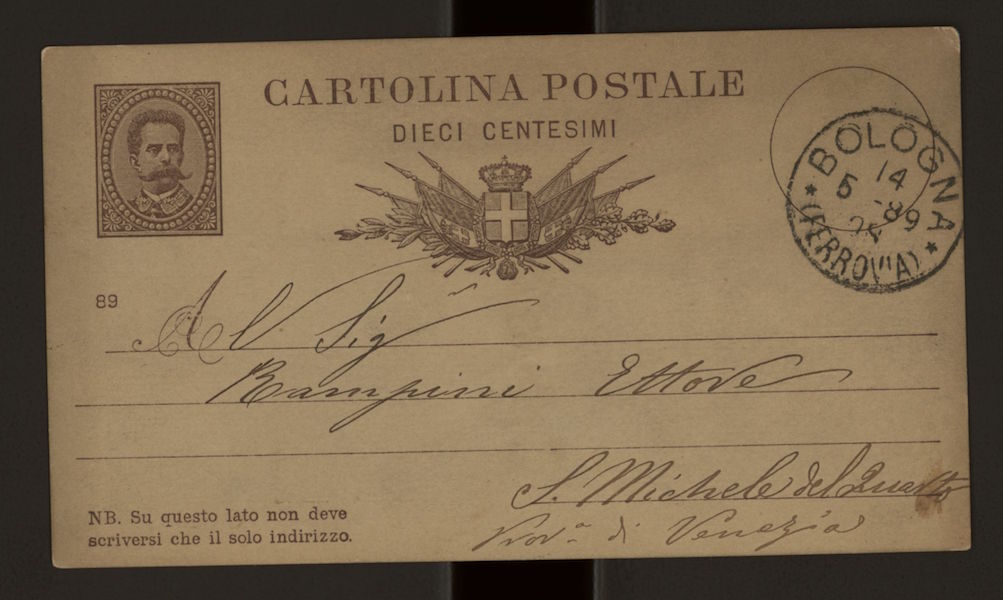 CARTOLINA POSTALE
DIECI CENTESIMI
BOLOGNA
14
5 -89
(FERROVIA)
89
Al Sig
Rampini Ettore
S. Michele del Quarto
Prov.a di Venezia
NB. Su questo lato non deve
scriversi che il solo indirizzo.